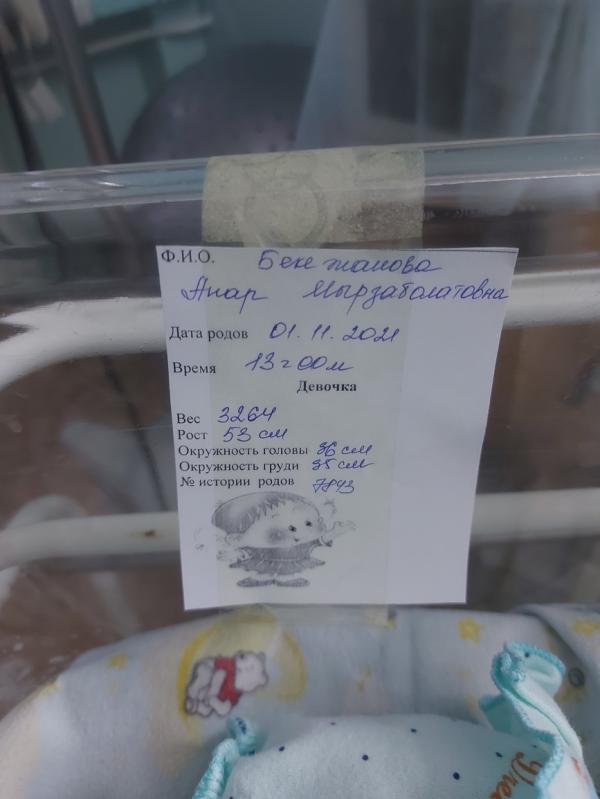 Ф.И.О. Бекежанова
Анар Мырзаболатовна
Дата родов 01.11.2021
Время 13ч00м
Девочка
Вес 3264
Рост 53 см
Окружность головы 36 см
Окружность груди 35 см
№ истории родов 7893